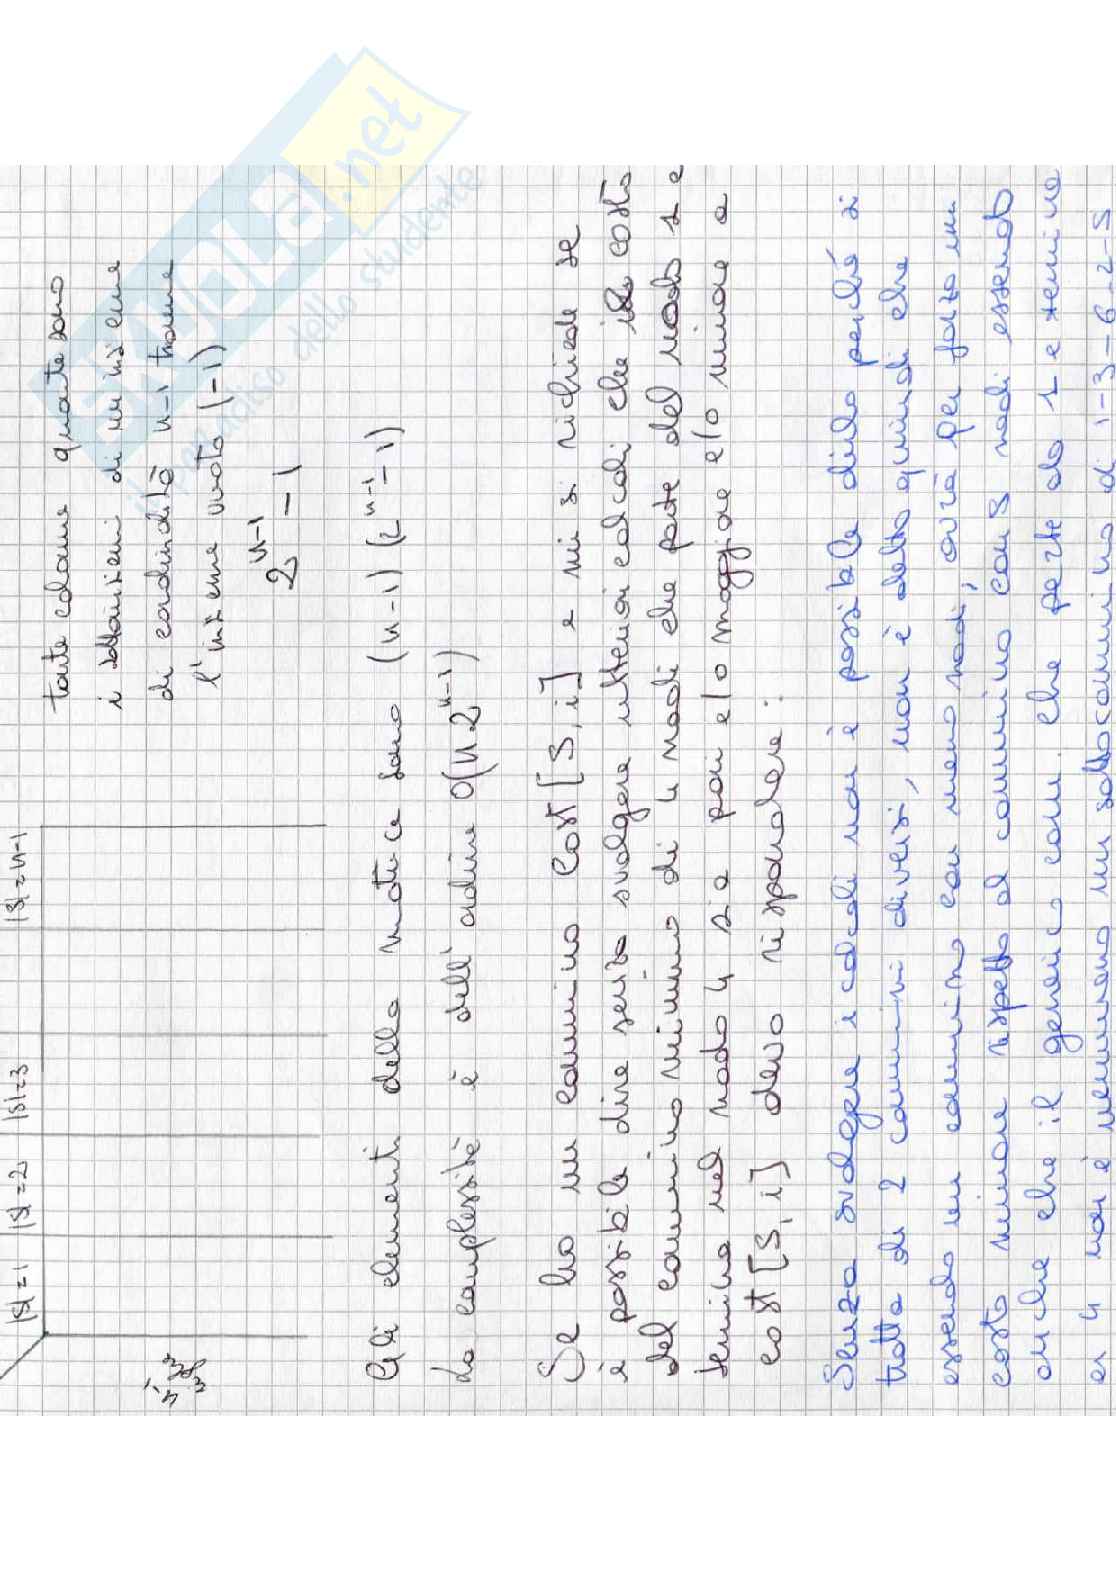 |S|=1 |S|=2 |S|=3 |S|=n-1
tante colonne quante sono
i sottoinsiemi di un insieme
di cardinalità n-1 tranne
l'insieme vuoto (-1)
2^{n-1} - 1
Gli elementi della matrice sono (n-1) (2^{n-1} - 1)
La complessità è dell'ordine O(n 2^{n-1})
Se ho un cammino cost [S, i] e mi si richiede se
è possibile dire senza svolgere ulteriori calcoli che il costo
del cammino minimo di 4 nodi che parte dal nodo 1 e
termina nel nodo 4 sia pari e/o maggiore e/o minore a
cost [S, i] devo rispondere:
Senza svolgere i calcoli non è possibile dirlo perché si
tratta di 2 cammini diversi, non è detto quindi che
essendo un cammino con meno nodi, avrà per forza un
costo minore rispetto al cammino con 5 nodi essendo
anche che il generico cam. che parte da 1 e termina
in 4 non è nemmeno un sottocammino di 1-3-6-2-5
ilparadiso dello studente
.net